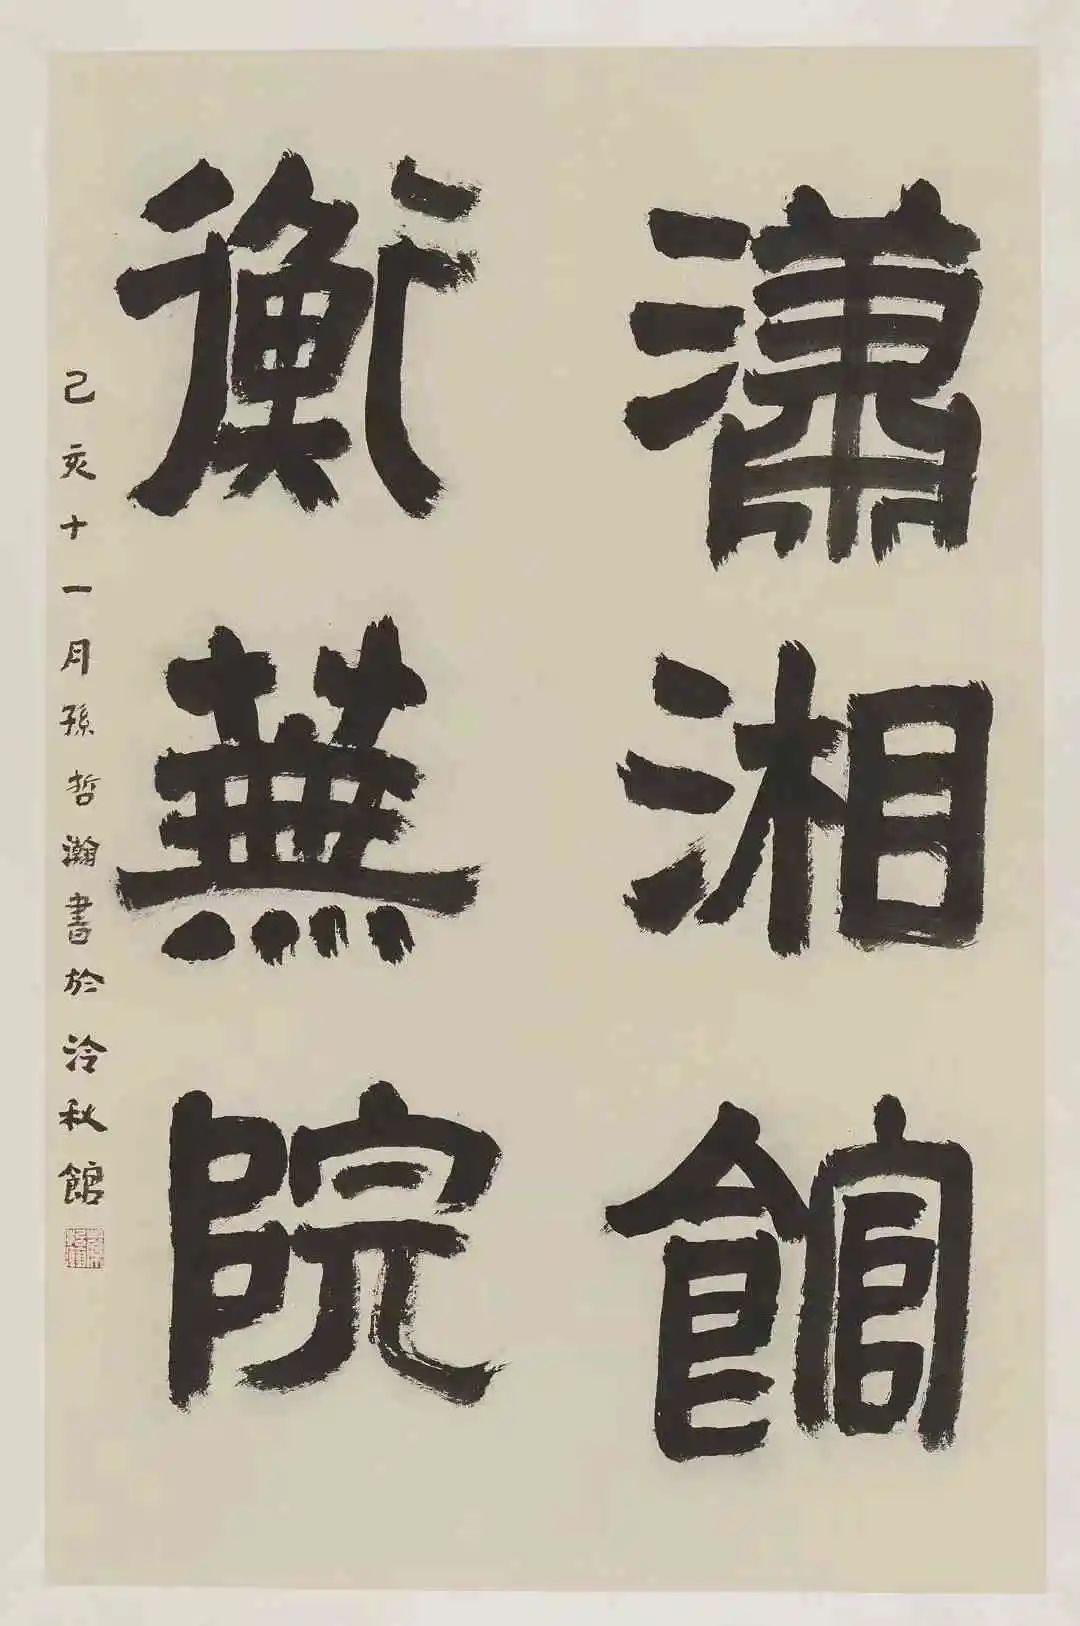 瀟湘館
衡蕪院
己亥十一月孫哲瀚書於泠秋館